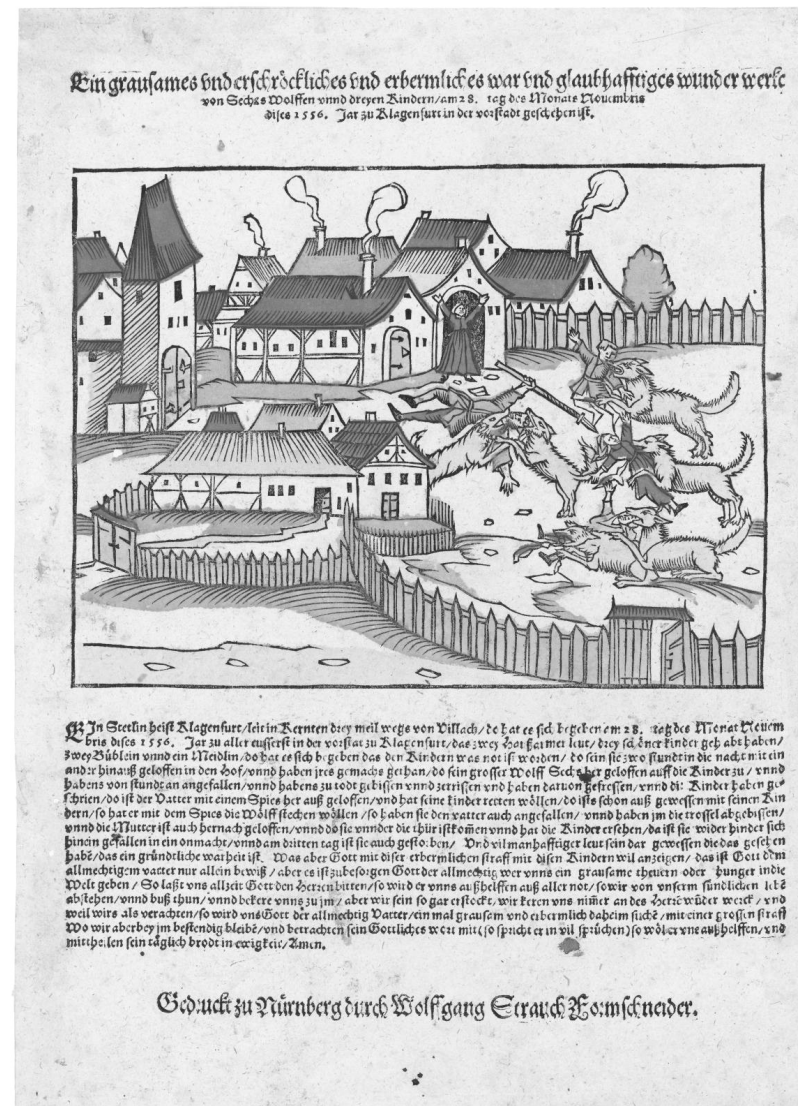 Ein grausames vnd erschröckliches vnd erbermlickes war vnd glaubhafftiges wunder werke
von Sechs Wolffen vnnd dreyen Kindern/am 28. tag des Monats Nouembris
dises 1556. Jar zu Klagenfurt in der vorstadt geschehen ist.
IN Stetlin heist Klagenfurt/leit in Kernten drey meil wegs von Villach/do hat es sich begeben am 28. tag des Monat Nouem
bris dises 1556. Jar zu aller eusserst in der vorstat zu Klagenfurt/das zwey Hat garmer leut/drey schöner kinder gehabt haben/
zwey Büblein vnnd ein Meidlin/do hat es sich begeben das den Kindern was not ist worden/do sein sie zwo stundt in die nacht mit ein
ander hinauß geloffen in den Hof/vnnd haben jres gemachs gethan/do sein grosser Wolff Sechs her geloffen auff die Kinder zu/vnnd
habens von stundt an angefallen/vnnd habens zu todt gebissen vnnd zerrissen vnd haben daruon gefressen/vnnd di: Kinder haben ge-
schrien/do ist der Vatter mit einem Spies her auß geloffen/vnd hat seine kinder retten wöllen/do ists schon auß gewessen mit seinen Kin
dern/so hat er mit dem Spies die Wölff stechen wöllen/so haben sie den vatter auch angefallen/vnnd haben jm die trossel abgebissen/
vnnd die Mutter ist auch hernach geloffen/vnnd do sie vnnder die thür ist komēn vnnd hat die Kinder ersehen/da ist sie wider hinder sich
hinein gefallen in ein onmacht/vnnd am dritten tag ist sie auch gestorben/Vnd vil manhafftiger leut sein dar gewessen die das gesehen
habē/das ein gründtliche warheit ist. Was aber Gott mit diser erbermlichen straff mit disen Kindern wil anzeigen/das ist Gott dem
allmechtigem vatter nur allein bewiß/aber es ist zubesorgen Gott der allmechtig wer vnns ein grausame theuern oder hunger in die
Welt geben/So laßt vns allzeit Gott den Herren bitten/so wird er vnns außhelffen auß aller not/so wir von vnserm sündlichen lebē
abstehen/vnnd buß thun/vnnd bekere vnns zu jm/aber wir sein so gar erstockt/wir keren vns nimer an des Herrē wūder werck/vnd
weil wirs als verachten/so wird vns Gott der allmechtig Vatter/ein mal grausam vnd erbermlich daheim suchē/mit einer grossen straff
Wo wir aber bey jm bestendig bleibē/vnd betrachten sein Göttliches wort mit (so spricht er in vil sprüchen) so wöl er vns außhelffen/vnd
mittheilen sein täglich brodt in ewigkeit/Amen.
Gedruckt zu Nürnberg durch Wolffgang Strauch Formschneider.